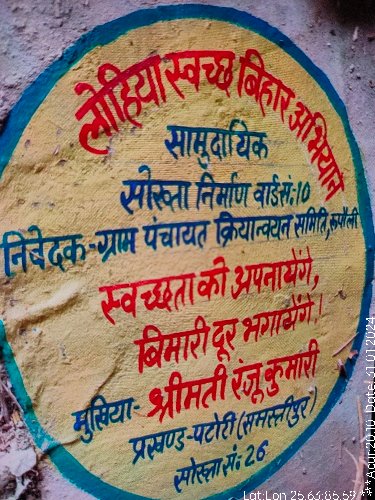 लोहिया स्वच्छ बिहार अभियान
सामुदायिक
सोख्ता निर्माण वार्ड सं:10
निवेदक-ग्राम पंचायत क्रियान्वयन समिति, रूपौली
स्वच्छता को अपनायेंगे,
बिमारी दूर भगायेंगे।
मुखिया- श्रीमती रंजू कुमारी
प्रखण्ड-पटोरी (समस्तीपुर)
सोख्ता सं: 26
Lat:Lon 25.63:85.59
***Acur:20.10 Date: 31 01 2024